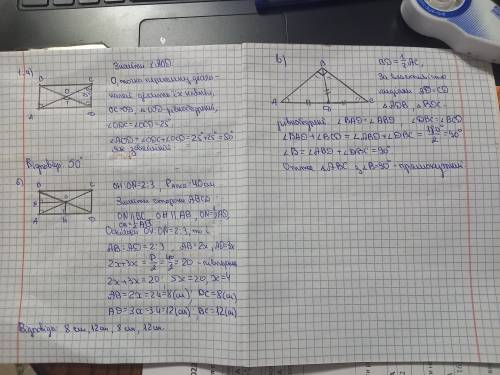 1. а)
Знайти ∠AOD
O, точка перетину діаго-
налей ділить їх навпіл,
OC=OD, △COD-рівнобедрений,
∠ODC=∠OCD=25°
∠AOD=∠ODC+∠OCD=25°+25°=50°
як зовнішній
Відповідь: 50°
б)
OH:ON=2:3, P ABCD=40см
Знайти сторони ABCD
ON||BC, OH||AB, ON=½AD,
OH=½AB
Оскільки OH:ON=2:3, то і
AB:AD=2:3, AB=2x, AD=3x
2x+3x=P/2=40/2=20 -півпериметр
2x+3x=20 5x=20, x=4
AB=2x=2·4=8(см); DC=8(см)
AD=3x=3·4=12(см); BC=12(см)
Відповідь: 8 см, 12см, 8 см, 12см.
в)
BD=½AC,
За властивістю
медіани AD=CD
△ADB, △BDC-
рівнобедрені ∠BAD=∠ABD, ∠DBC=∠BCD
∠BAD+∠BCD=∠ABD+∠DBC=180°/2=90°
∠B=∠ABD+∠DBC=90°
Отже △ABC з ∠B=90°-прямокутний